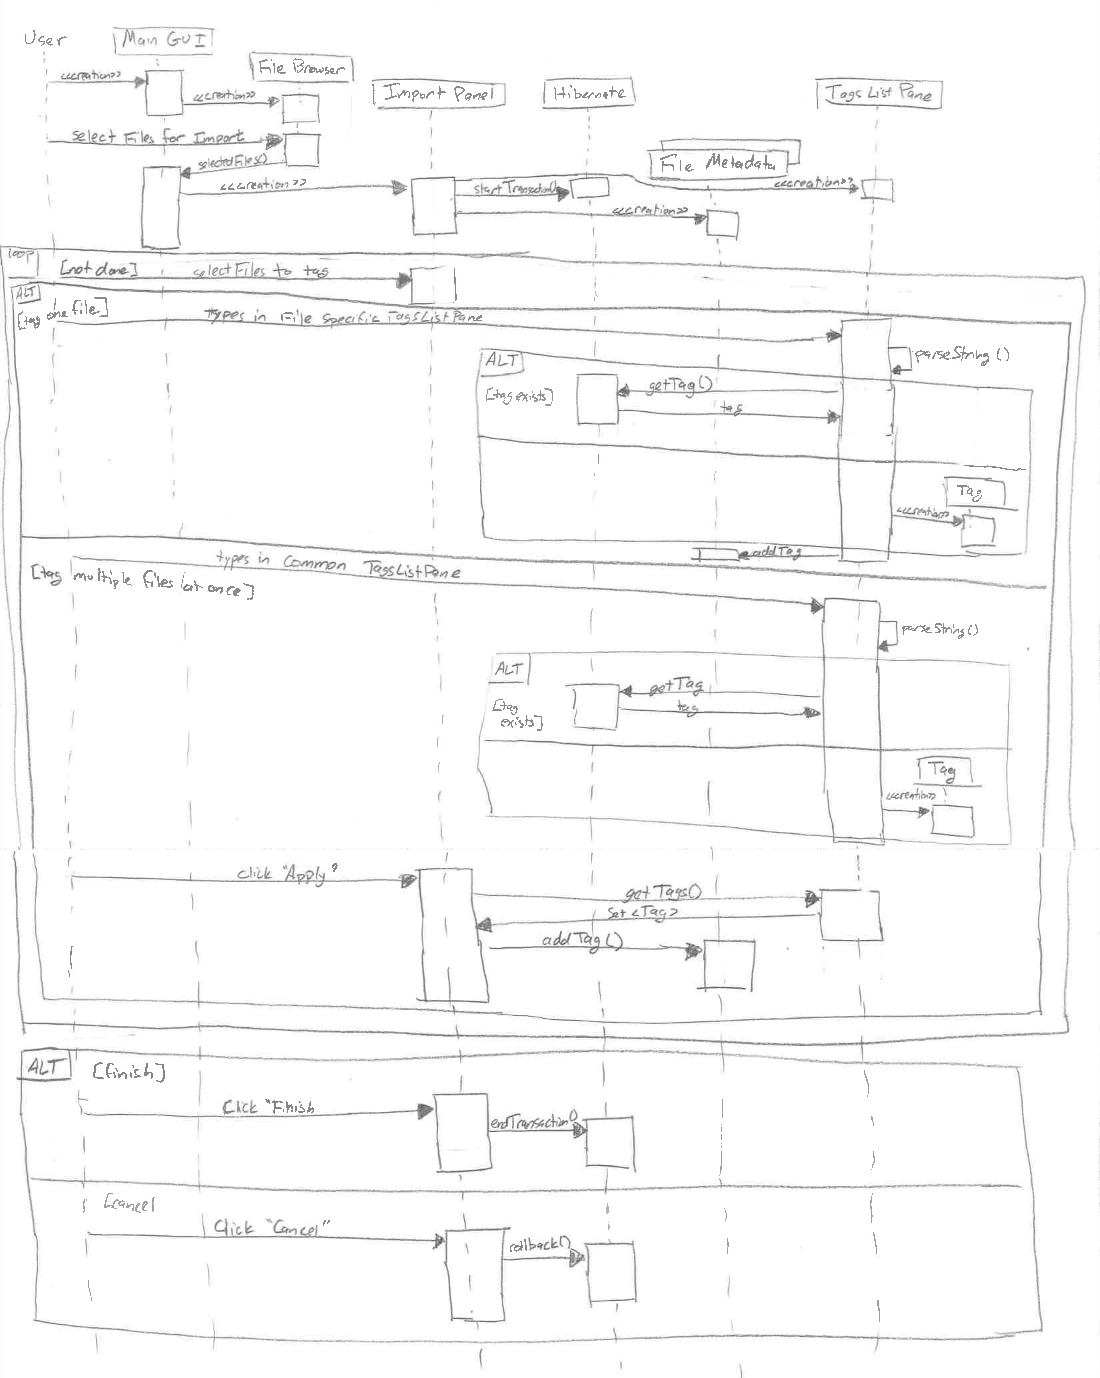 User
Main GUI
File Browser
Import Panel
Hibernate
Tags List Pane
<<creation>>
<<creation>>
select Files for Import
selectedFiles()
File Metadata
<<creation>>
startTransaction()
<<creation>>
<<creation>>
loop
[not done]
selectFiles to tag
ALT
[tag one file]
types in File Specific TagsListPane
parseString()
ALT
[tag exists]
getTag()
tag
Tag
<<creation>>
addTag
types in Common TagsListPane
[tag multiple files at once]
parseString()
ALT
[tag
exists]
getTag
tag
Tag
<<creation>>
click "Apply"
getTags()
Set<Tag>
addTag()
ALT
[finish]
Click "Finish
endTransaction()
[cancel
Click "Cancel"
rollback()